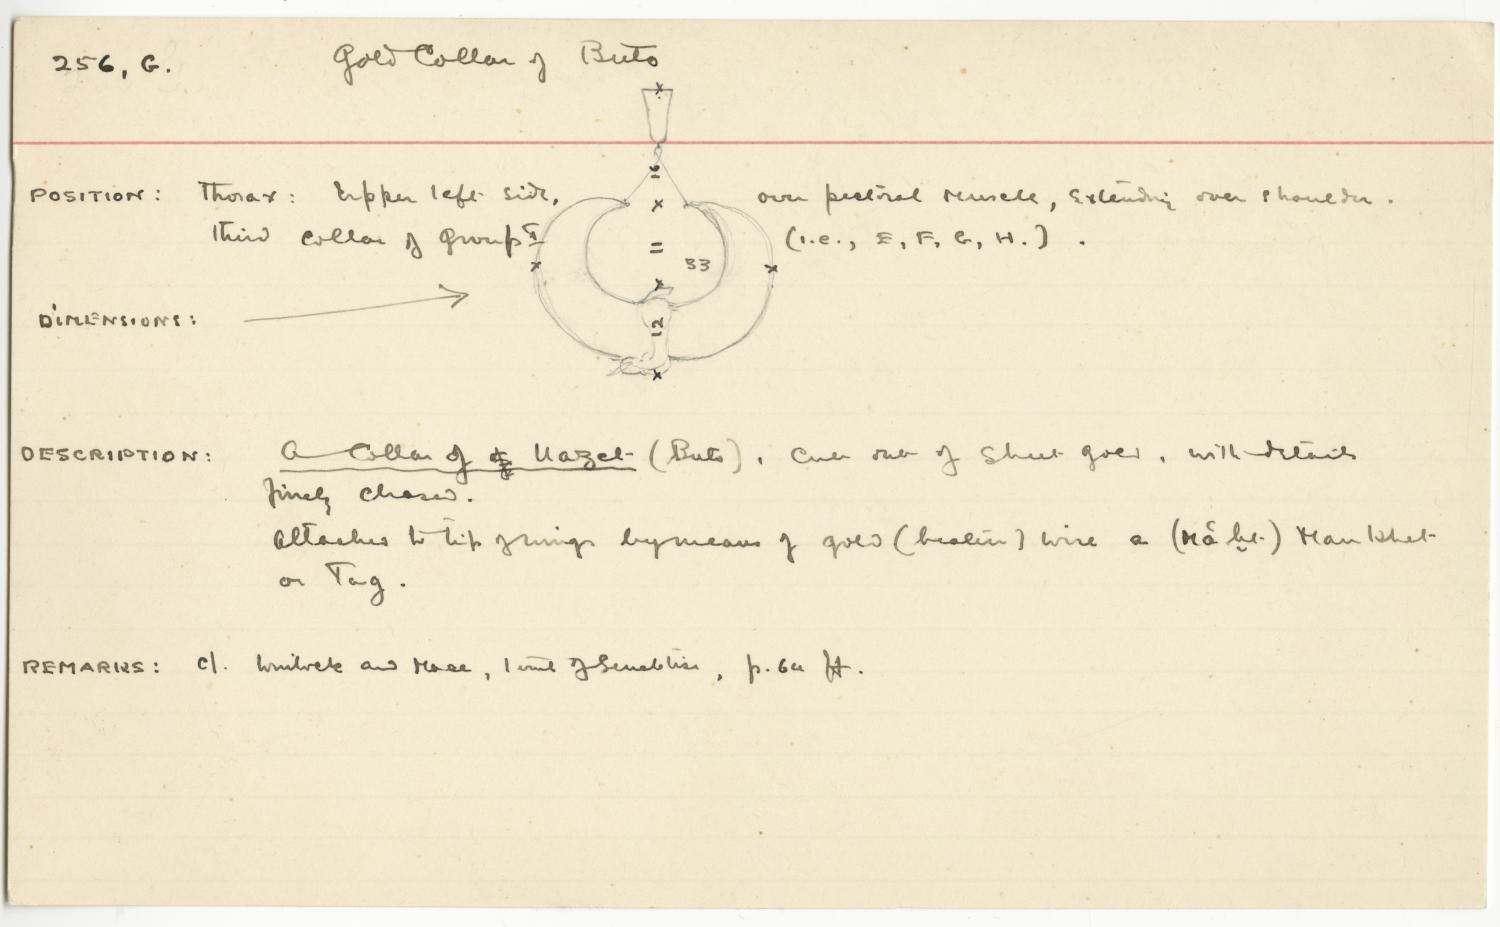 256, G. Gold Collar of Buto
POSITION: Thorax: Upper left side, over pectoral muscle, extending over shoulder.
third collar of group I (i.e., E, F, G, H.).
16
=
33
DIMENSIONS:
12
DESCRIPTION: A Collar of Uazet (Buto), cut out of sheet gold, with details
finely chased.
Attached to tip of wings by means of gold (beaten) wire a Mankhet
or Tag.
REMARKS: cf. Winlock and Mace, Tomb of Senebtisi, p. 64 ff.